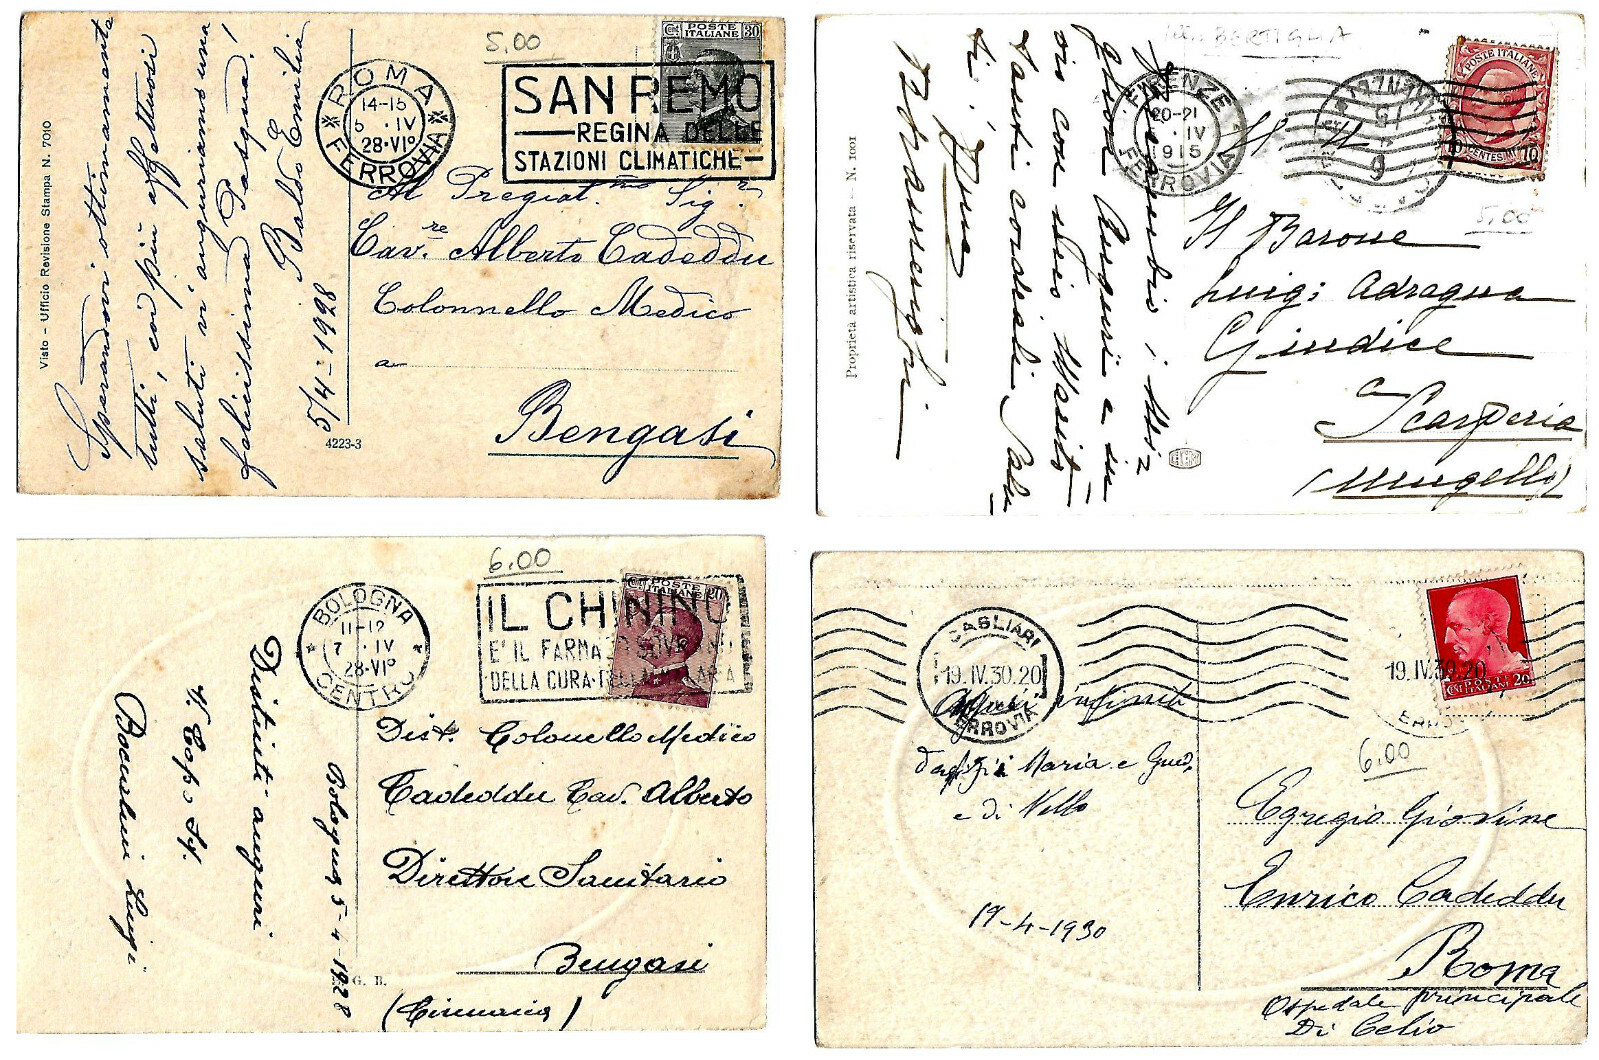 5.00
Cmi. POSTE ITALIANE 30
ROMA
14-15
5 . IV
28·VIº
FERROVIA
SAN REMO
REGINA DELLE
STAZIONI CLIMATICHE
Al Pregiat.mo Sig.r
Cav.re Alberto Cadeddu
Colonnello Medico
a
Bengasi
4223-3
Visto - Ufficio Revisione Stampa N. 7010
Sperandovi ottimamente
tutti, coi più affettuosi
saluti vi auguriamo una
felicissima Pasqua!
Baldo Emilia
5/4=1928
BERTIGLIA
POSTE ITALIANE
10 CENTESIMI 10
FIRENZE
20-21
IV
1915
FERROVIA
5,00
Il Barone
Luigi Adragna
Giudice
a
Scarperia
(Mugello)
Proprietà artistica riservata - N. 1001
i miei
auguri e in
suo Marito
cordiali
di Dina
6.00
POSTE ITALIANE 20
BOLOGNA
11-12
7 . IV
28·VIº
CENTRO
IL CHININO
E' IL FARMA SOVR
DELLA CURA
Dist. Colonello Medico
Cadeddu Cav. Alberto
Direttore Sanitario
Bengasi
(Cirenaica)
G. B.
Bologna 5-4-1928
Distinti auguri
Boccaleri Luigi
CAGLIARI
19.IV.30.20
FERROVIA
19.IV.30.20
POSTE ITALIANE 20
6.00
Auguri infiniti
Maria e
e di Nello
19-4-1930
Egregio Giovine
Enrico Cadeddu
Roma
Ospedale principale
Di Celio